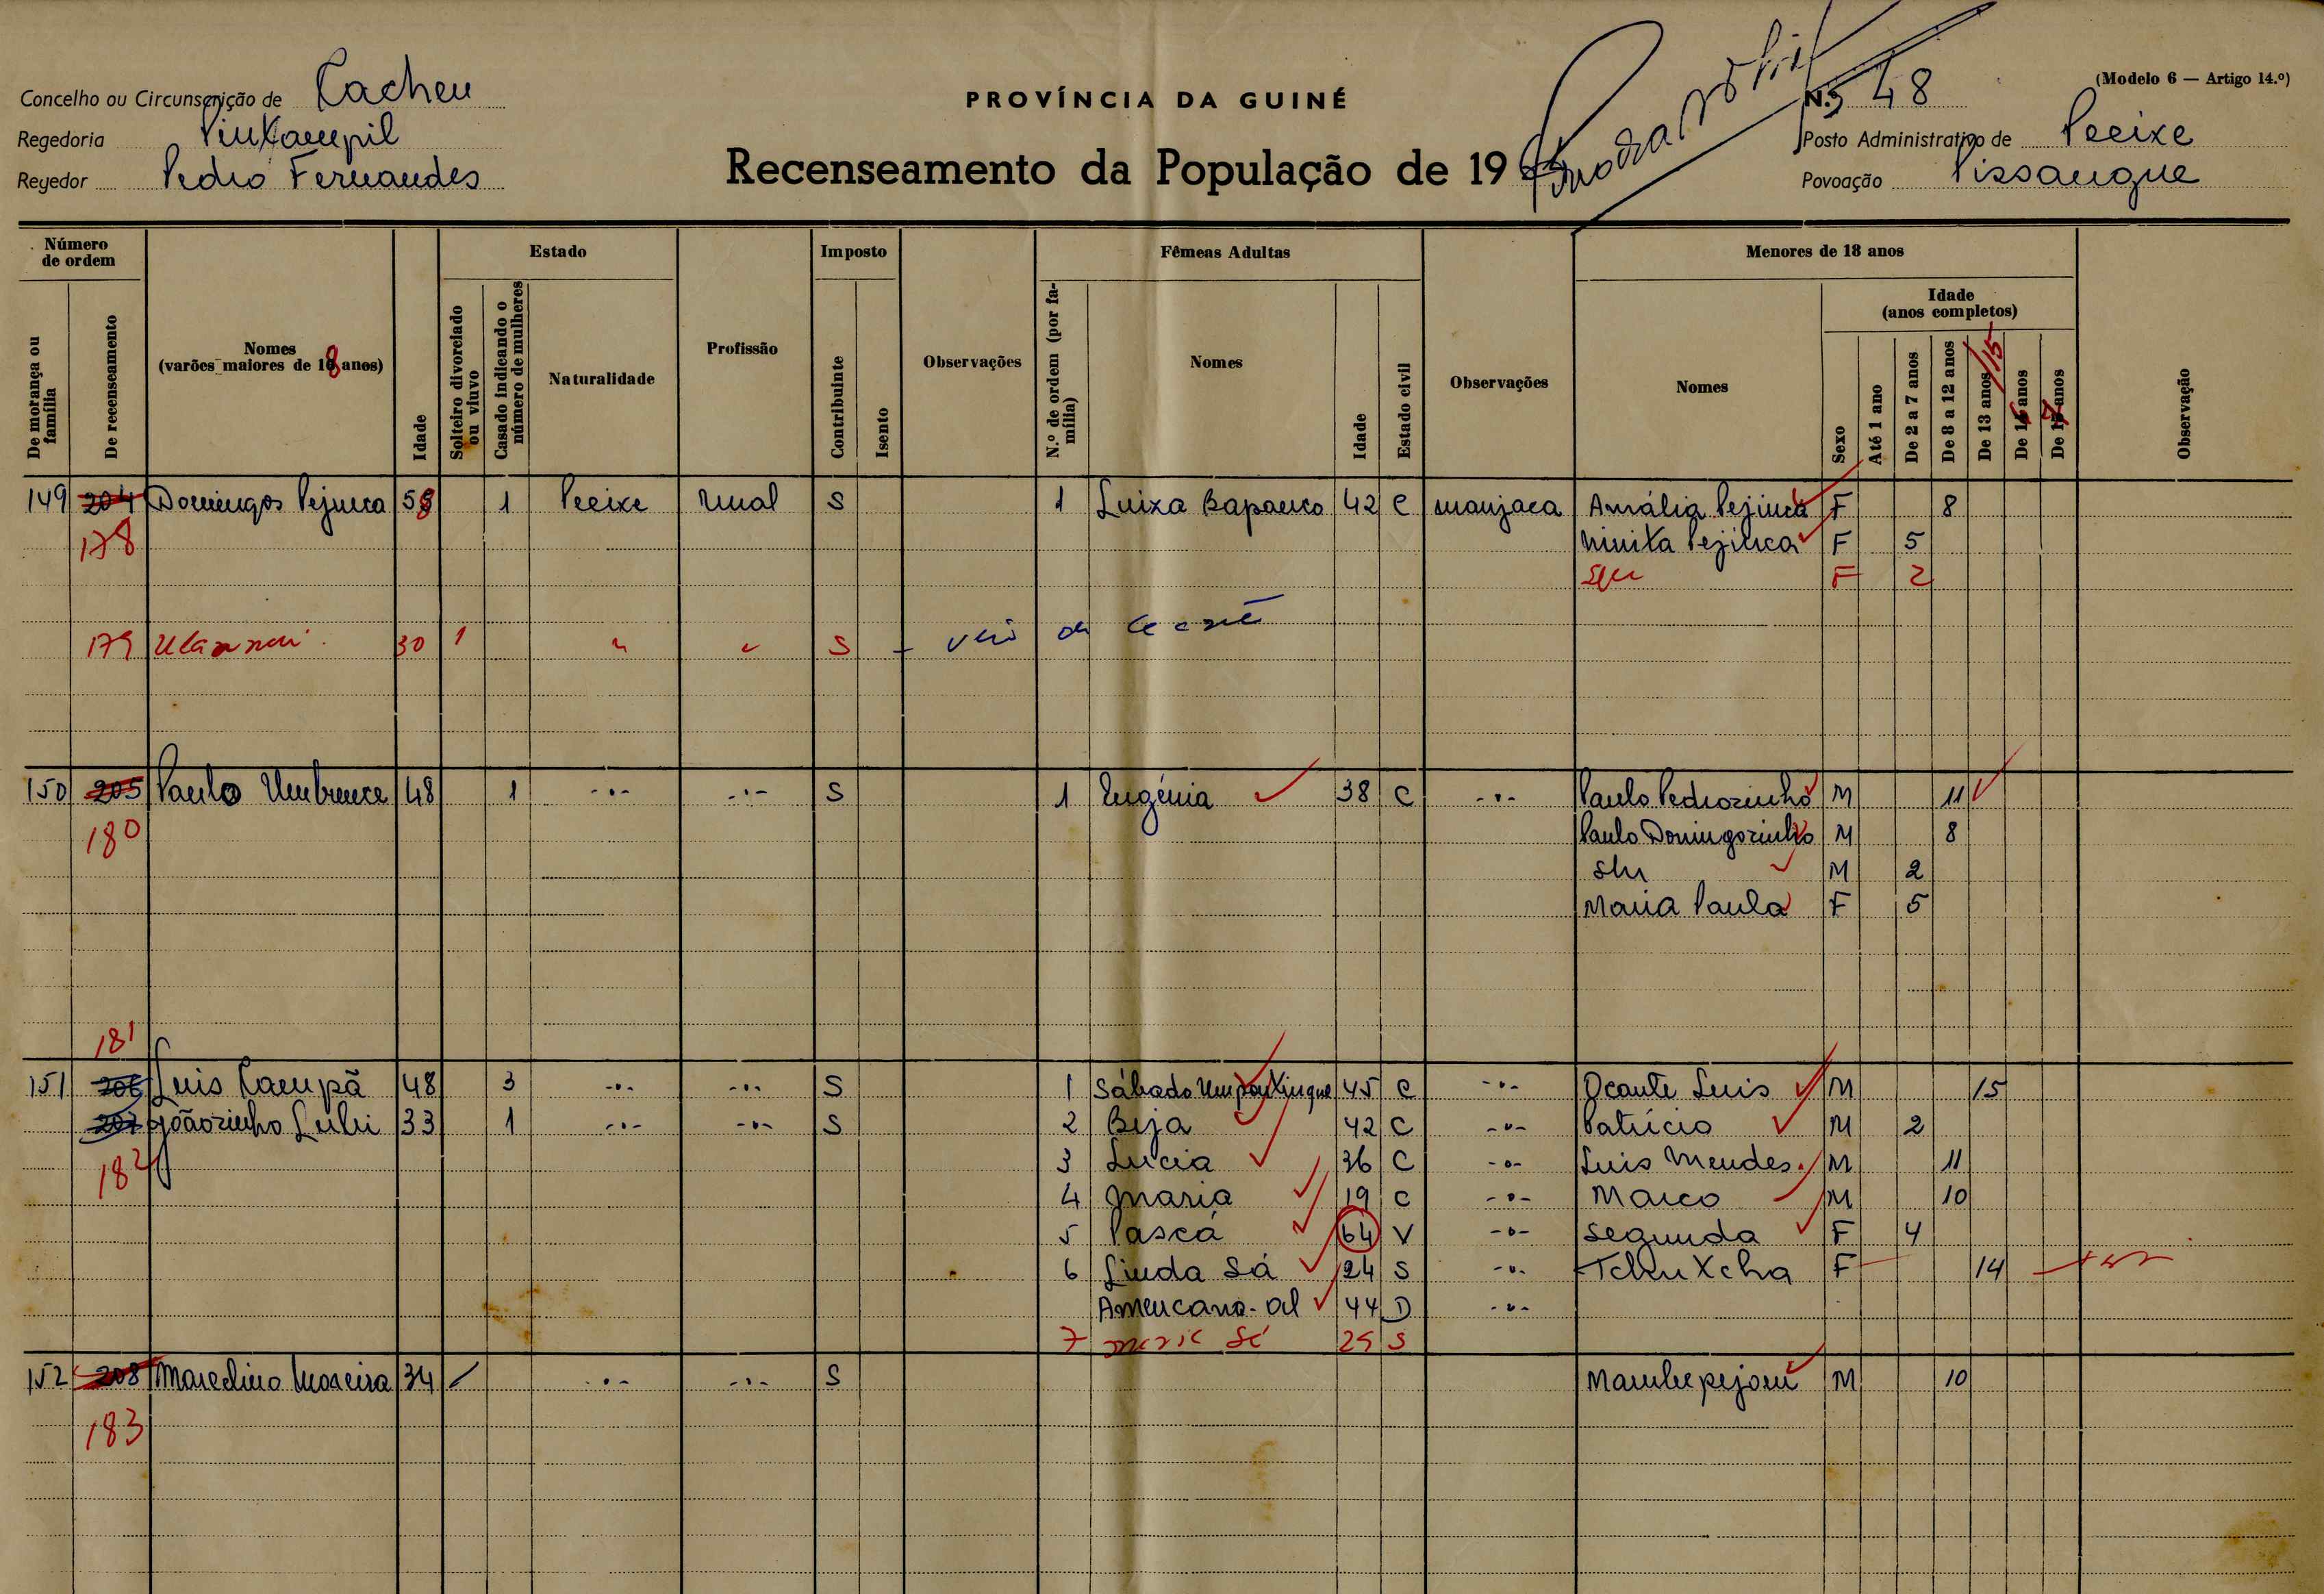 (Modelo 6 — Artigo 14.º)
Concelho ou Circunscrição de Cacheu
PROVÍNCIA DA GUINÉ
N.º 48
Regedoria
Posto Administrativo de Pecixe
Regedor Pedro Fernandes
Recenseamento da População de 19
Povoação Pissangue
Número de ordem
De morança ou família
De recenseamento
Nomes (varões maiores de 18 anos)
Idade
Estado
Solteiro divorciado ou viuvo
Casado indicando o número de mulheres
Naturalidade
Profissão
Imposto
Contribuinte
Isento
Observações
Fêmeas Adultas
N.º de ordem (por família)
Nomes
Idade
Estado civil
Observações
Menores de 18 anos
Nomes
Idade (anos completos)
Sexo
Até 1 ano
De 2 a 7 anos
De 8 a 12 anos
De 13 anos /15
De 16 anos
De 17 anos
Observação
149 204 Domingos Pejuca 58 1 Pecixe rual S 1 Luiza Bapanco 42 C manjaca Amália Pejuca F 8
178 Ninita Pejuca F 5
F 2
179 30 1 " " S - veio de
150 205 Paulo 48 1 -"- -"- S 1 Eugénia 38 C -"- Paulo Pedrozinho M 11
180 Paulo Domingozinho M 8
M 2
Maria Paula F 5
181
151 206 Luis Campã 48 3 -"- -"- S 1 Sábado 45 C -"- Ocante Luis M 15
207 Joãozinho 33 1 -"- -"- S 2 Beja 42 C -"- Patrício M 2
182 3 Lucia 36 C -"- Luis Mendes M 11
4 Maria 19 C -"- Marco M 10
5 Pascá 64 V -"- Segunda F 4
6 Linda Sá 24 S -"- F 14
44 D -"-
7 Sá 25 S
152 208 Marcelino Moreira 34 -"- -"- S M 10
183